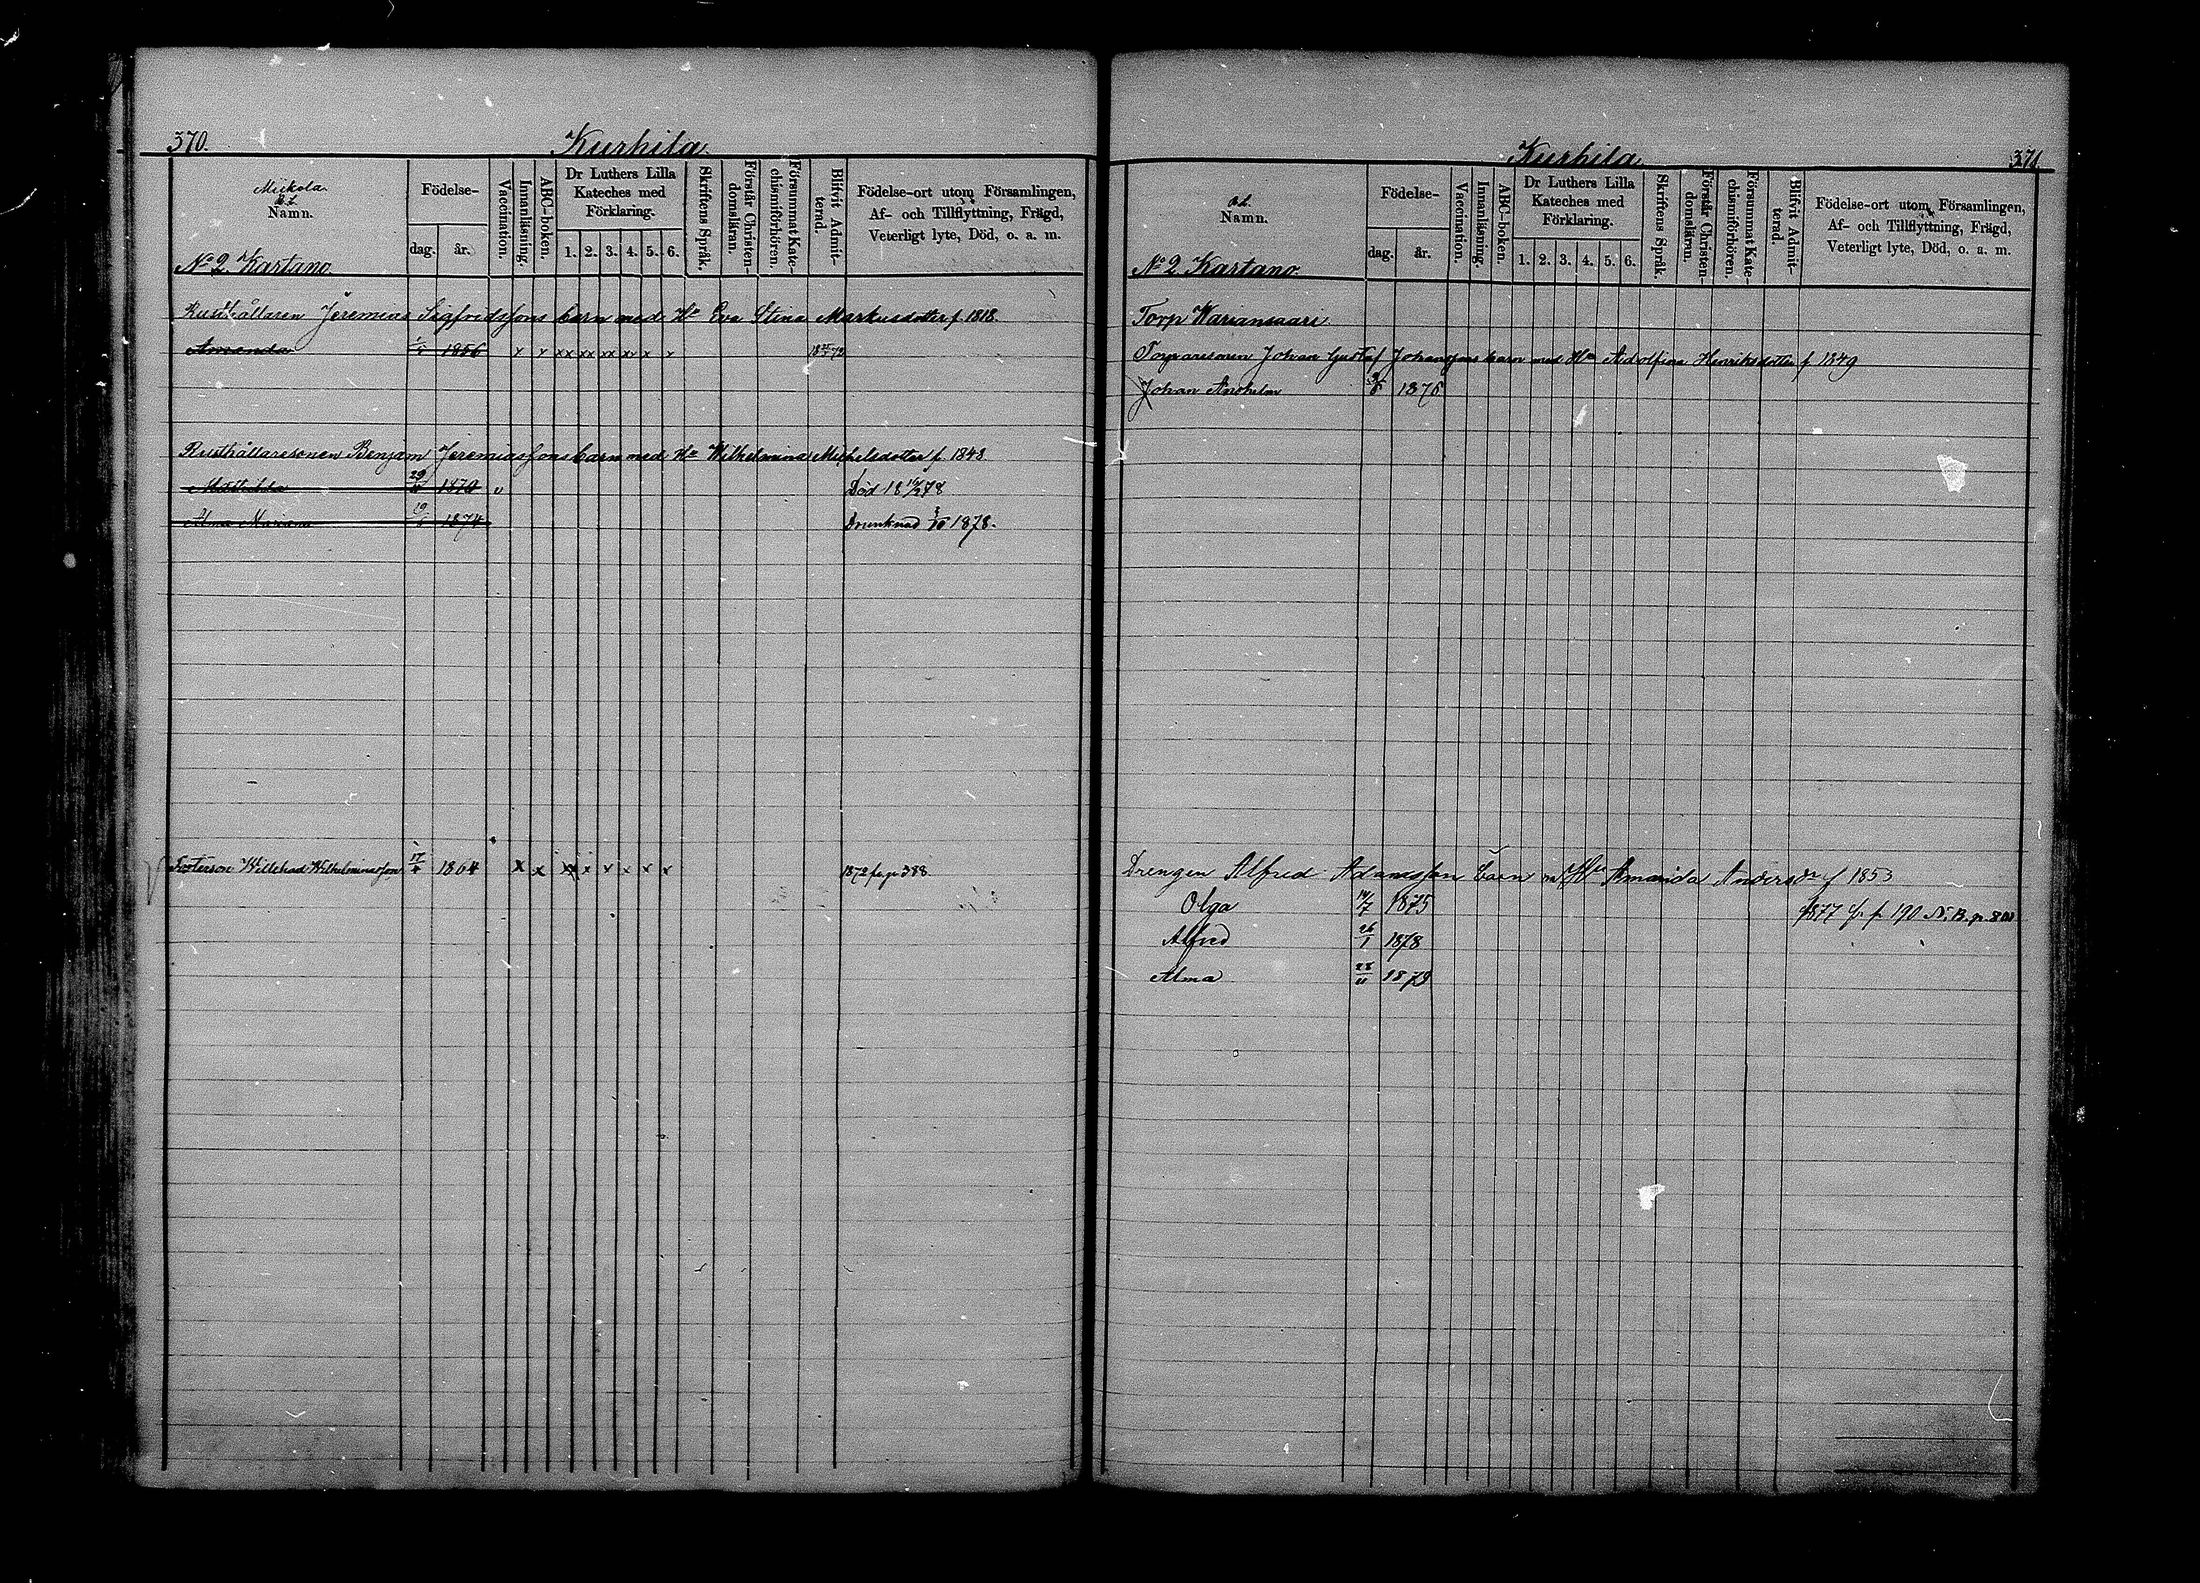 370.
Kurhila
Mickola
Namn.
Födelse-
dag.
år.
Vaccination.
Innanläsning.
ABC-boken.
Dr Luthers Lilla
Kateches med
Förklaring.
1. 2. 3. 4. 5. 6.
Skriftens Språk.
Förstår Christen-
domsläran.
Försummat Kate-
chismiförhören.
Blifvit Admit-
terad.
Födelse-ort utom Församlingen,
Af- och Tillflyttning, Frägd,
Veterligt lyte, Död, o. a. m.
No 2. Kartano
Rusthållaren Jeremias Sigfridssons barn med Ha Eva Stina Markusdotter f. 1818.
Amanda 1856 x x xx xx xx xx x x
Rusthållaresonen Benjam Jeremiassons barn med Ha Wilhelmina Michelsdotter f. 1848
Mathilda 1870 v Död
Alma Mariana 1874 Drunknad 1878.
Fosterson Willehad Wilhelminasson 17 1864 x x xx x x x x x 1872 fr. p. 388
Kurhila
371
Namn.
Födelse-
dag.
år.
Vaccination.
Innanläsning.
ABC-boken.
Dr Luthers Lilla
Kateches med
Förklaring.
1. 2. 3. 4. 5. 6.
Skriftens Språk.
Förstår Christen-
domsläran.
Försummat Kate-
chismiförhören.
Blifvit Admit-
terad.
Födelse-ort utom Församlingen,
Af- och Tillflyttning, Frägd,
Veterligt lyte, Död, o. a. m.
No 2 Kartano
Torp Wariansaari
Torparesonen Johan Gustaf Johanssons barn med Ha Adolfina Henriksdotter f 1849
Johan
Drengen Alfred Adamsson barn m Ha Amanda Andersdr f 1853
Olga 1875 1877 fr p 190 N. B. p.
Alfred 26/1 1878
Alma 28/11 1879